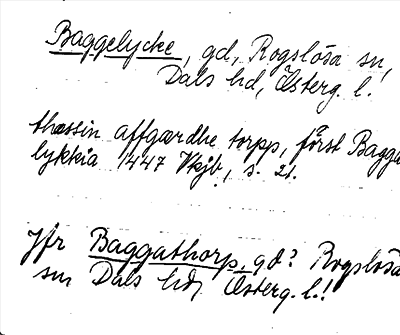 Baggelycke, gd, Rogslösa sn,
Dals hd, Österg. l.
thæssin affgærdhe torpp, först Bagga
lykkia 1447 Vkjb, s. 21.
Jfr Baggathorp, gd? Rogslösa
sn Dals hd, Österg. l.!